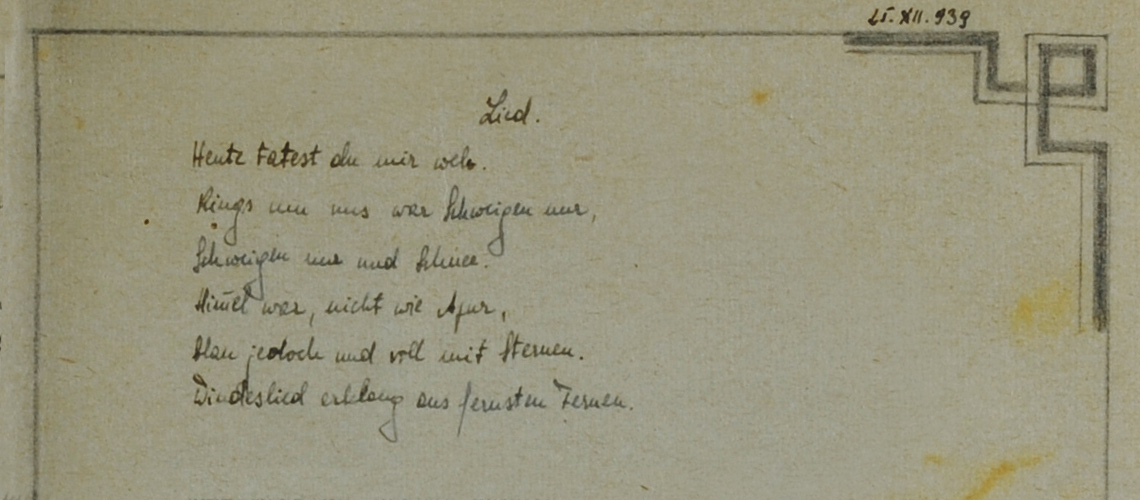 25. XII. 939
Lied.
Heute tatest du mir weh.
Rings um uns war Schweigen nur,
Schweigen nur und Schnee.
Him̅el war, nicht wie Azur,
Blau jedoch und voll mit Sternen.
Windeslied erklang aus fernsten Fernen.